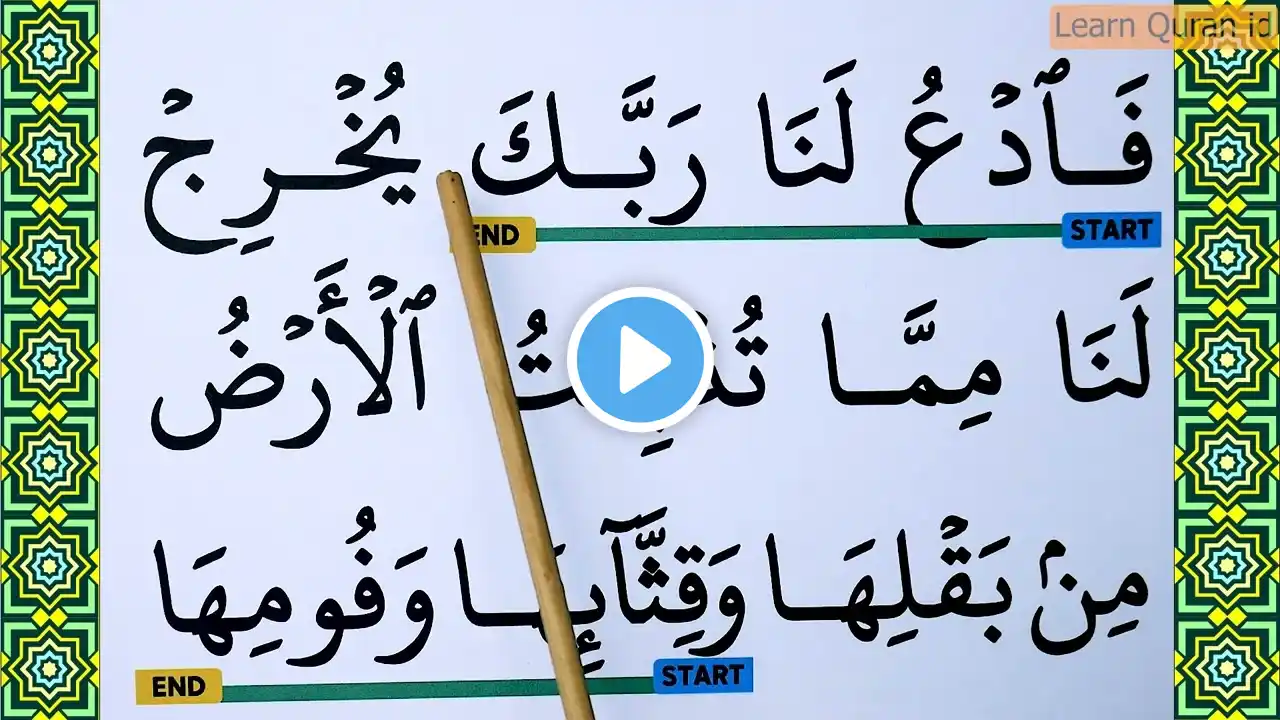 Learn Quran id
فَٱدۡعُ لَنَا رَبَّكَ يُخۡرِجۡ
END START
لَنَا مِمَّا ٱلۡأَرۡضُ
مِنۢ بَقۡلِهَا وَقِثَّآئِهَا وَفُومِهَا
END START